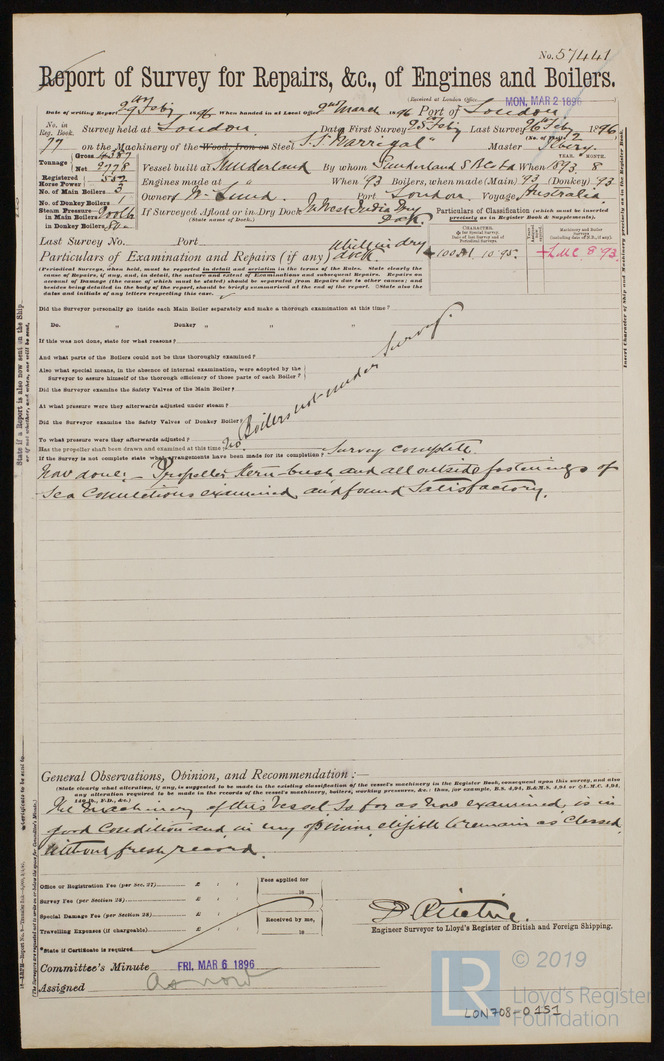 No. 57441
Report of Survey for Repairs, &c., of Engines and Boilers.
(Received at London Office
MON. MAR 2 1896
Date of writing Report 27th Feby 1896 When handed in at Local Office 2nd March 1896 Port of London
No. in Reg. Book. Survey held at London Date, First Survey 25 Feby Last Survey 26th Feby 1896
(No. of Visits 2
77 on the Machinery of the Wood, Iron or Steel S.S. "Barrigal" Master
Tonnage { Gross 4387
Net 2778
Vessel built at Sunderland By whom Sunderland S B Co Ld When 1893 8
YEAR. MONTH.
Registered Horse Power 552
Engines made at " When 93 Boilers, when made (Main) 93 (Donkey) 93
No. of Main Boilers 3
No. of Donkey Boilers 1
Owners W. Lund. Port London Voyage Australia
Steam Pressure in Main Boilers 200 lb
in Donkey Boilers 80
If Surveyed Afloat or in Dry Dock In West India Dry Dock
(State name of Dock.)
Particulars of Classification (which must be inserted precisely as in Register Book & Supplements).
Last Survey No. Port
Particulars of Examination and Repairs (if any) Whilst in dry dock.
CHARACTER.
+100A1. 10.95.
+LMC. 8.93.
(Periodical Surveys, when held, must be reported in detail and seriatim in the terms of the Rules. State clearly the cause of Repairs, if any, and, in detail, the nature and extent of Examinations and subsequent Repairs. Repairs on account of Damage (the cause of which must be stated) should be separated from Repairs due to other causes; and besides being detailed in the body of the report, should be briefly summarised at the end of the report. State also the dates and initials of any letters respecting this case.
Did the Surveyor personally go inside each Main Boiler separately and make a thorough examination at this time?
Do. " Donkey " " " "
If this was not done, state for what reasons?
And what parts of the Boilers could not be thus thoroughly examined?
Also what special means, in the absence of internal examination, were adopted by the
Surveyor to assure himself of the thorough efficiency of those parts of each Boiler?
Did the Surveyor examine the Safety Valves of the Main Boiler?
At what pressure were they afterwards adjusted under steam?
Did the Surveyor examine the Safety Valves of Donkey Boiler?
To what pressure were they afterwards adjusted?
Boilers not under Survey.
Has the propeller shaft been drawn and examined at this time? No.
If the Survey is not complete state what arrangements have been made for its completion? Survey complete.
Now done:- Propeller, Stern-bush and all outside fastenings of
Sea Connections examined and found Satisfactory.
General Observations, Opinion, and Recommendation:—
(State clearly what alteration, if any, is suggested to be made in the existing classification of the vessel's machinery in the Register Book, consequent upon this survey, and also
any alteration required to be made in the records of the vessel's machinery, boilers, working pressures, &c.: thus, for example, B.S. 4,94, B.&M.S. 4,94 or L.M.C. 4,94,
140 lb., F.D., &c.)
The Machinery of this Vessel So far as now examined, is in
good Condition and in my opinion eligible to remain as Classed
Without fresh record.
Office or Registration Fee (per Sec. 27) £ : :
Fees applied for
18
Survey Fee (per Section 28) £ : :
Special Damage Fee (per Section 28) £ : :
Received by me,
18
Travelling Expenses (if chargeable) £ : :
*State if Certificate is required
D Ritchie.
Engineer Surveyor to Lloyd's Register of British and Foreign Shipping.
Committee's Minute FRI. MAR 6 1896
Assigned as now
State if a Report is also now sent on the Ship.
Insert Character of Ship and Machinery precisely as in the Register Book.
LR
© 2019
Lloyd's Register
Foundation
LON708-0151